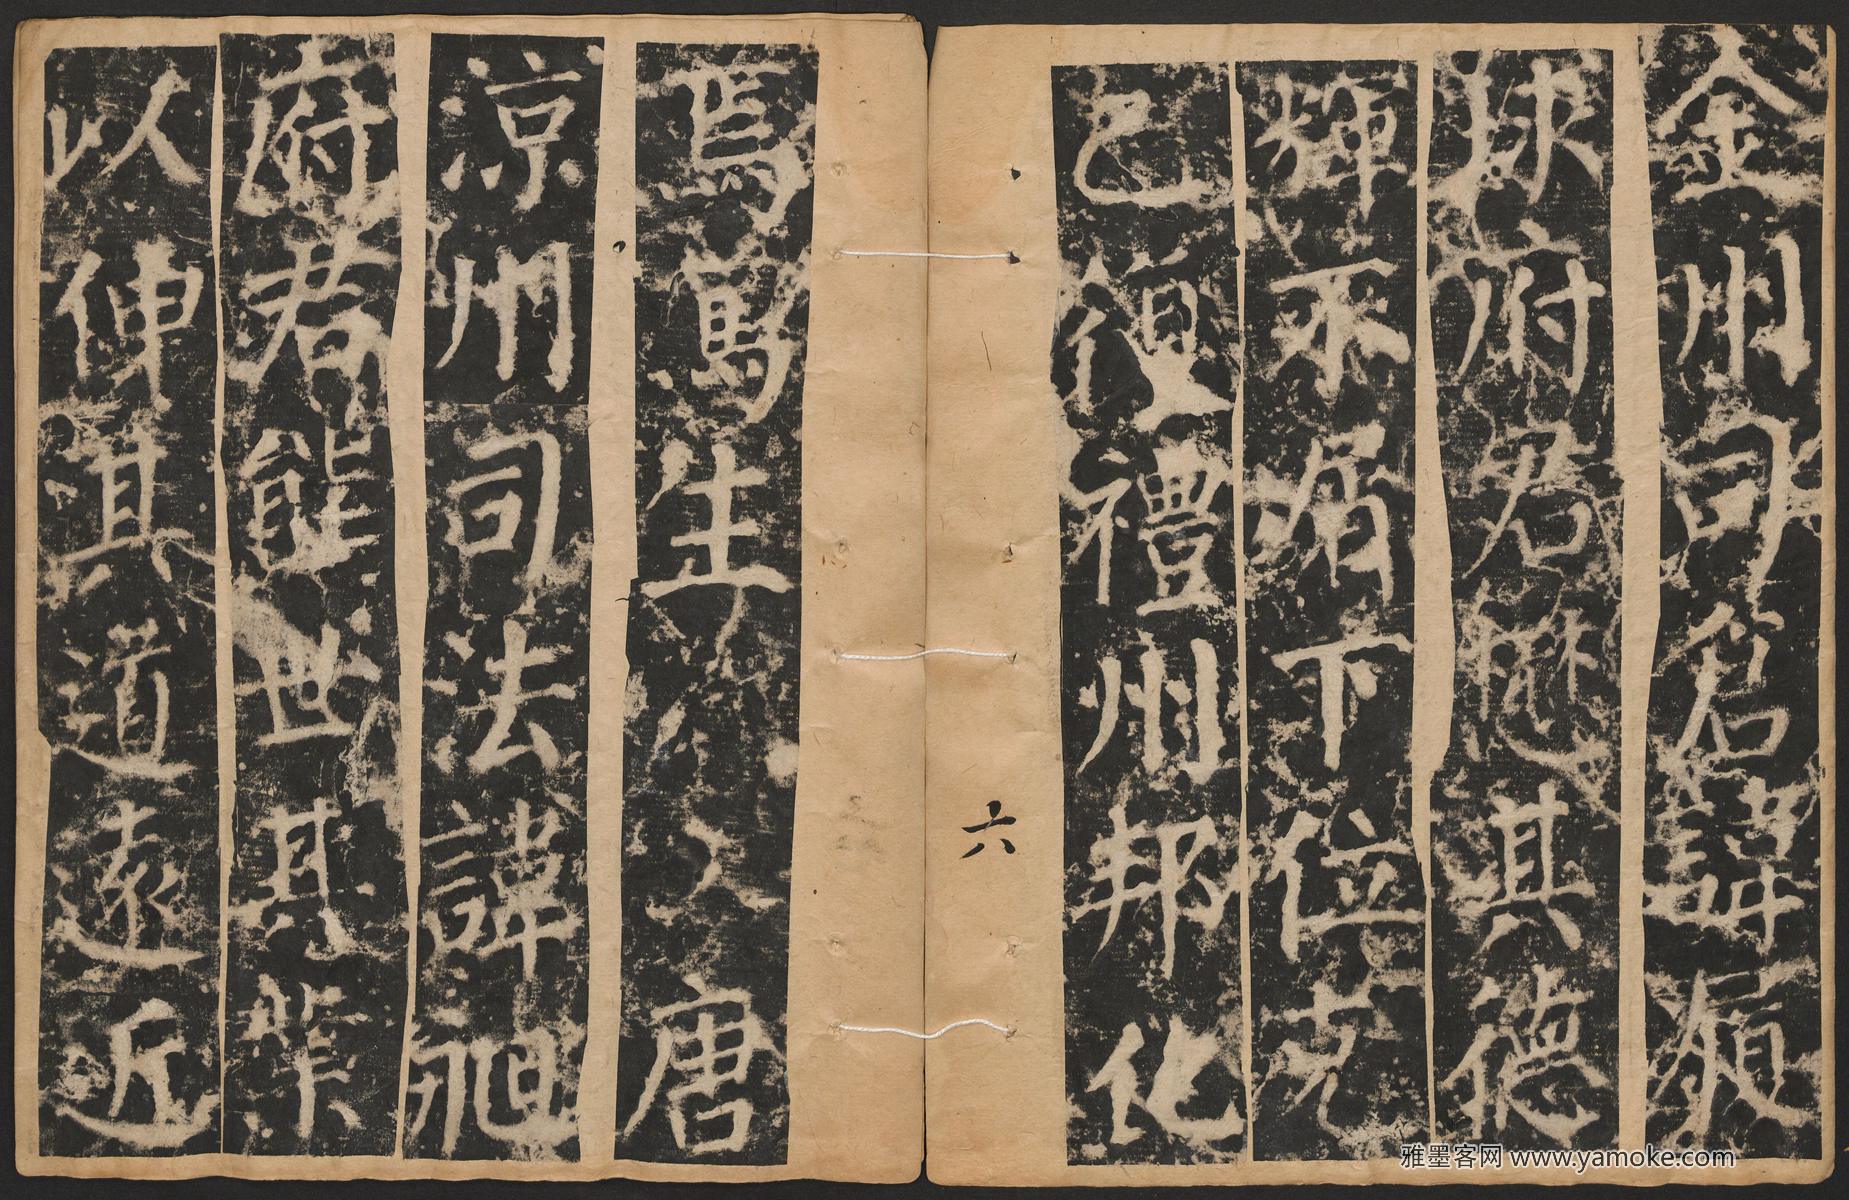 金州司倉諱履
球府君懋其德
輝不屑下位克
己復禮州邦化
六
焉篤生唐
凉州司法諱昶
府君能世其業
以伸其道遠近
雅墨客网 www.yamoke.com